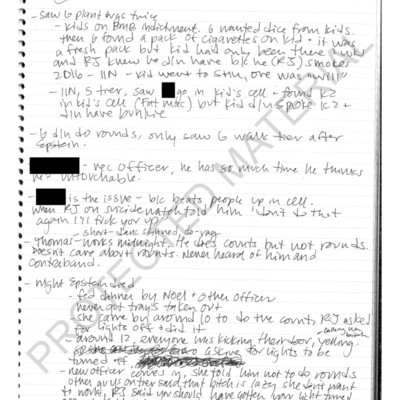 - saw G plant was twice
- kids on BMB indictment. G wanted dice from kids.
then G found a pack of cigarettes on kid. it was
a fresh pack but kid had only been there
and RJ knew he didn have b/c he (RJ) smokes
2016 - 11N - kid went to
- 11N, 5 tier, saw go in kid's cell + found K2
in kid's cell (Fat Mac) but kid d/n smoke K2 +
d/n have
- G d/n do rounds, only saw G walk tier after
Epstein.
- rec officer, he has so much time he thinks
he untouchable.
- is the issue - b/c beats people up in cell.
when RJ on suicide watch told him don't do that
again I'll fuck you up
- short, skinned, do-rag
- Thomas - works midnight. He does counts but not rounds.
Doesn't care about rounds. Never heard of him and
contraband.
- night Epstein died
- fed dinner by Noel + other officer
- never got trays taken out
- she came by around 10 to do the count, RJ asked
for lights off + did it
- around 12, everyone was kicking their door, yelling
asking for lights to be
turned off
- new officer comes in, she told him not to do rounds
other guys on tier said that bitch is lazy she don't want
to work, RJ said you should have gotten your light turned
PROTECTED MATERIAL